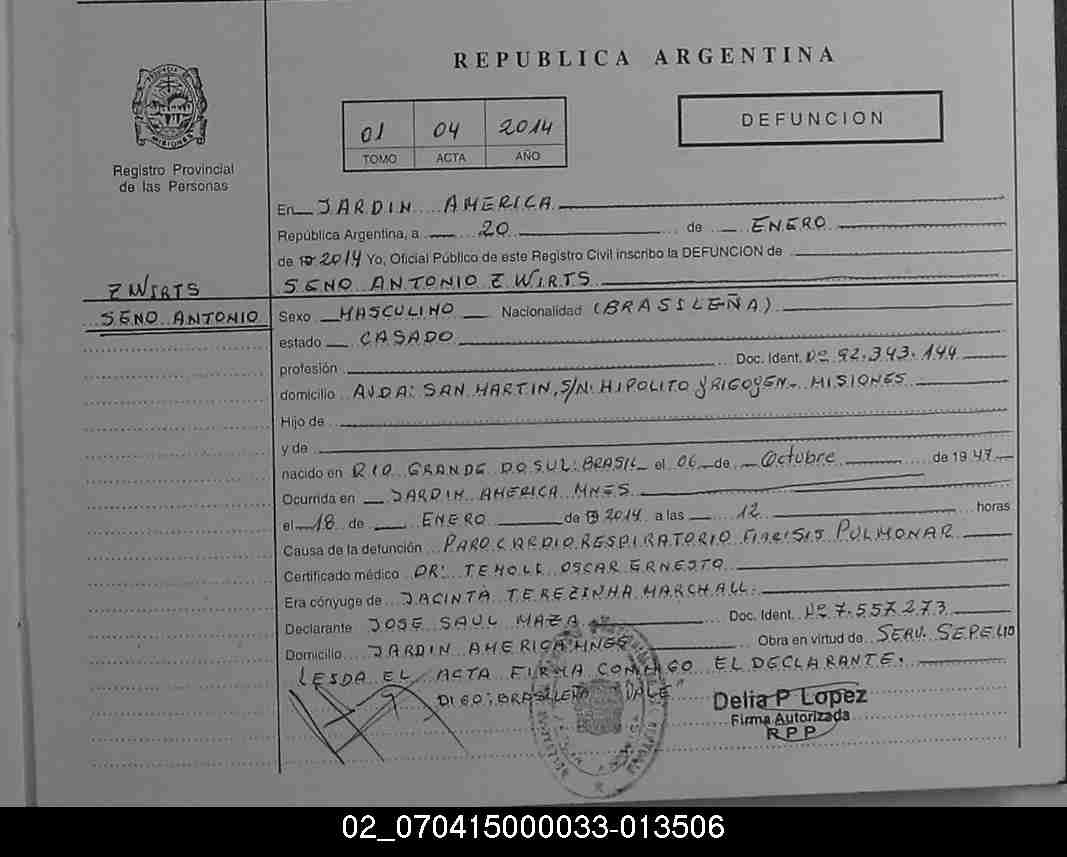 REPUBLICA ARGENTINA
01 04 2014
TOMO ACTA AÑO
DEFUNCION
PROVINCIA DE MISIONES
Registro Provincial
de las Personas
En JARDIN AMERICA
República Argentina, a 20 de ENERO
de 2014 Yo, Oficial Público de este Registro Civil inscribo la DEFUNCION de
ZWIRTS
SENO ANTONIO ZWIRTS
SENO ANTONIO
Sexo MASCULINO Nacionalidad (BRASILEÑA)
estado CASADO
profesión Doc. Ident. Nº 92.343.144
domicilio AVDA: SAN MARTIN, S/N. HIPOLITO YRIGOYEN - MISIONES
Hijo de
y de
nacido en RIO GRANDE DO SUL: BRASIL el 06 de Octubre de 1947
Ocurrida en JARDIN AMERICA MNES
el 18 de ENERO de 2014 a las 12 horas
Causa de la defunción PARO CARDIORESPIRATORIO PULMONAR
Certificado médico DR: OSCAR ERNESTO
Era cónyuge de JACINTA TEREZINHA MARCHALL.
Declarante JOSE SAUL MAZA Doc. Ident. Nº 7.557.273
Domicilio JARDIN AMERICA MNES Obra en virtud de SERV. SEPELIO
LESDA EL ACTA FIRMA CONMIGO EL DECLARANTE.
DIGO: BRASILEÑA "VALE"
Delia P Lopez
Firma Autorizada
RPP
02_070415000033-013506